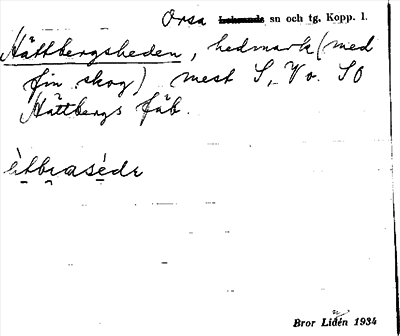 Orsa sn och tg, Kopp. l.
Hättbergsheden, hedmark (med
fin skog) mest S, V o. SO
Hättbergs fäb.
Bror Lidén 1934